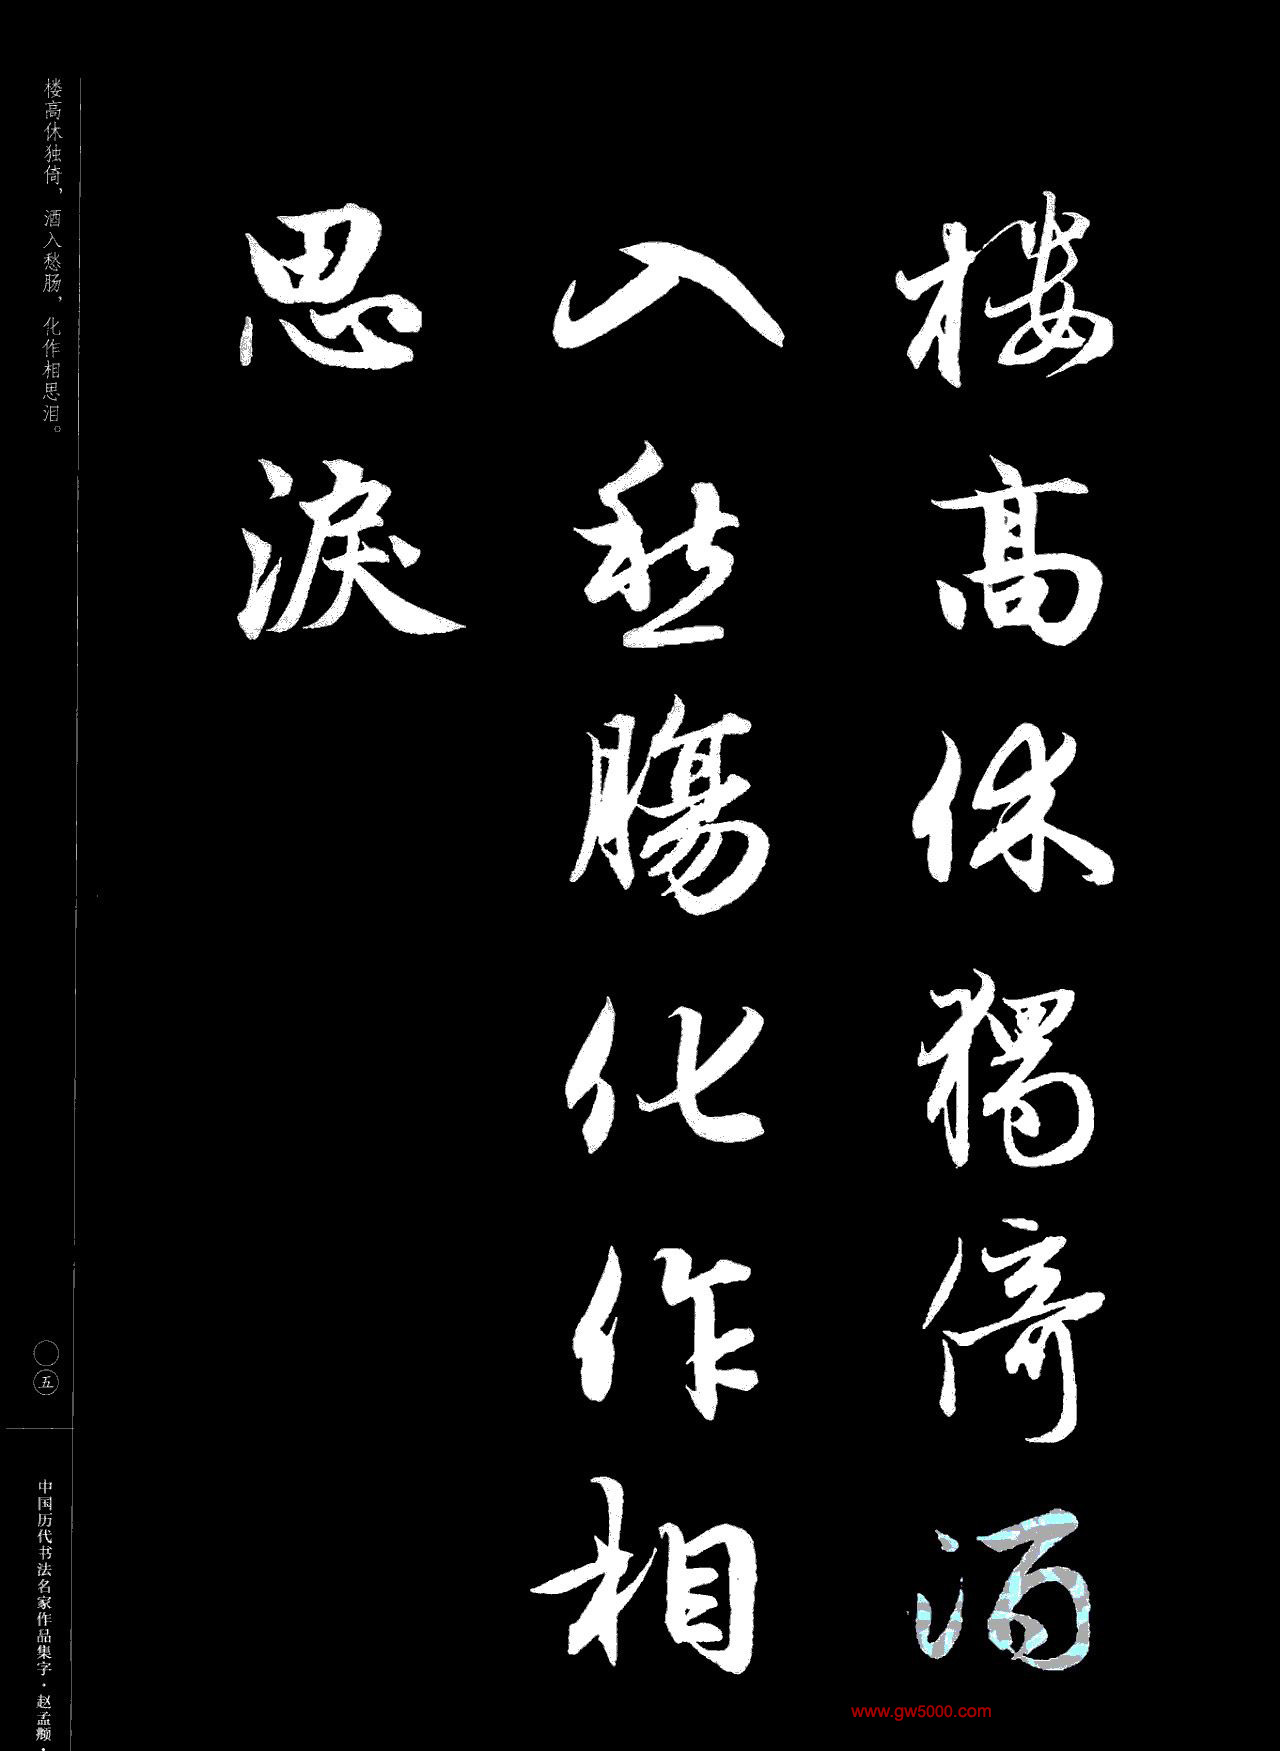 楼高休獨倚酒
入愁腸化作相
思淚
楼高休独倚，酒入愁肠，化作相思泪。
〇五
中国历代书法名家作品集字·赵孟頫·
www.gw5000.com